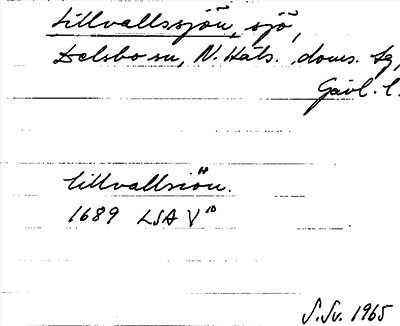 Lillvallssjön, sjö,
Delsbo sn, N. Häls. doms. sg,
Gävl. l.
lillvallsiön.
1689 LSA V 10
S. Sv. 1965